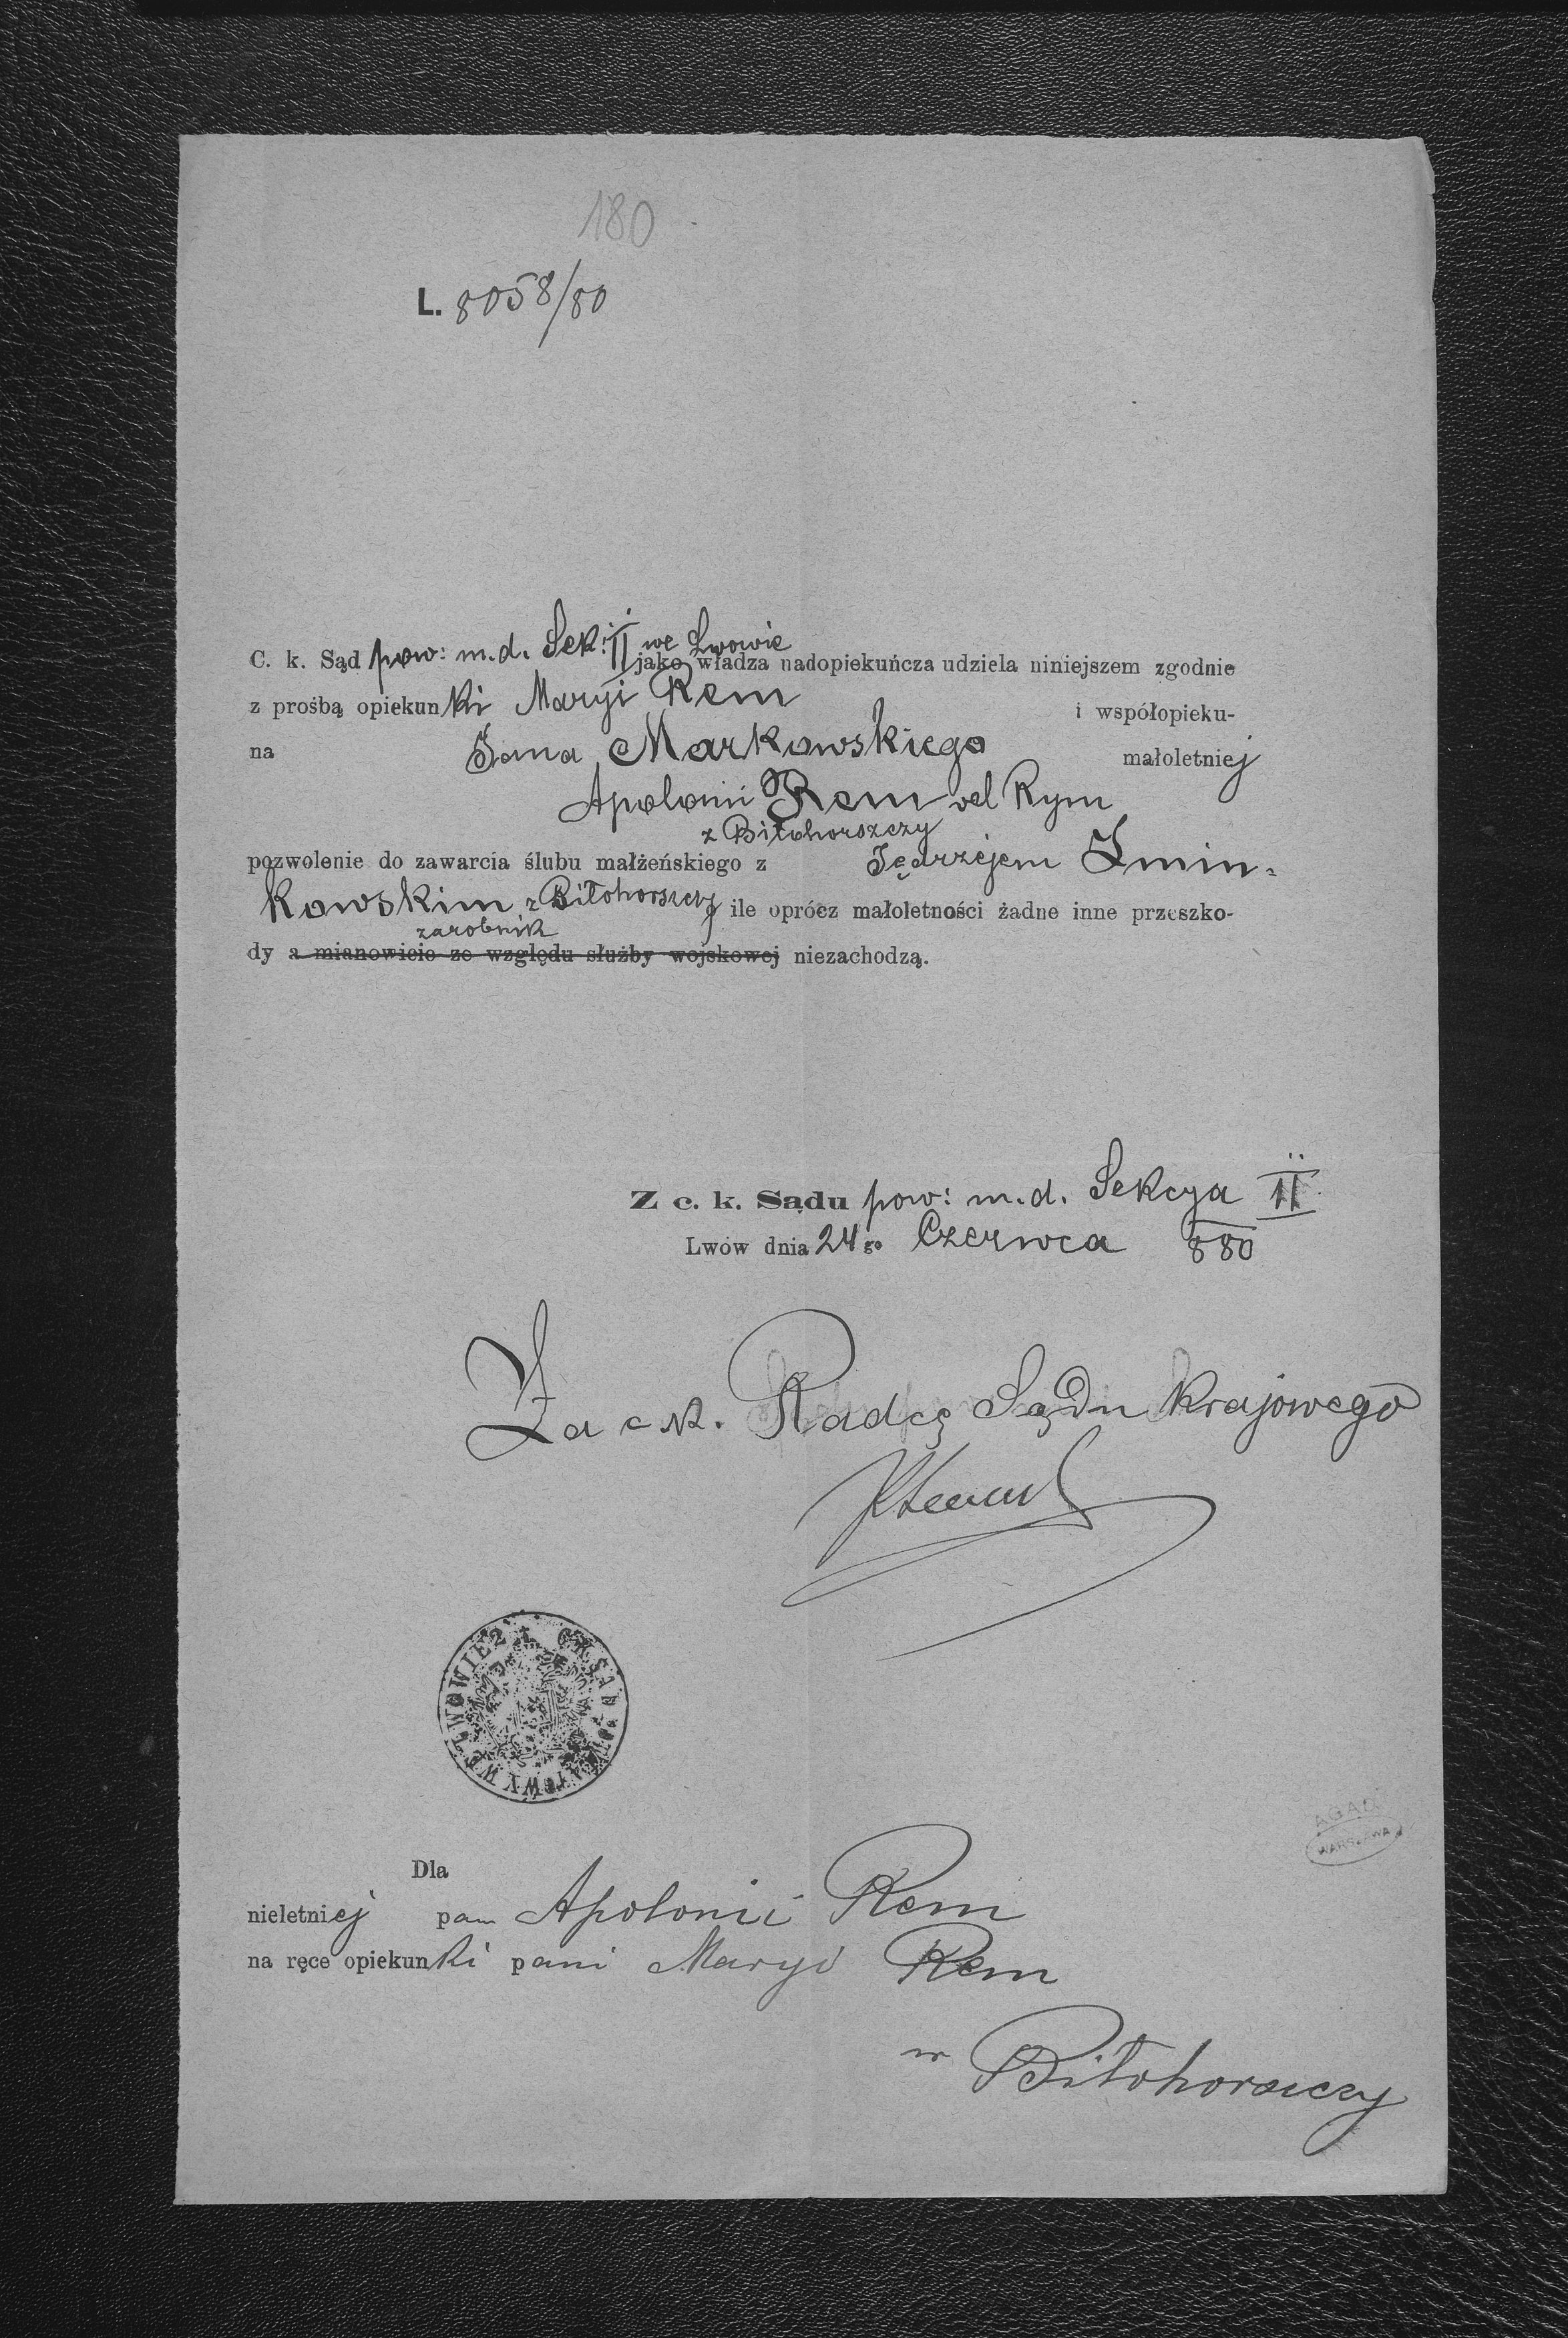 180
L. 8058/80
C. k. Sąd pow: m. d. Sek: II we Lwowie jako władza nadopiekuńcza udziela niniejszem zgodnie
z prośbą opiekunki Maryi Rem i współopieku-
na Jana Markowskiego małoletniej
Apolonii Rem vel Rym
z Biłohorszczy
pozwolenie do zawarcia ślubu małżeńskiego z Jędrzejem Żmin-
kowskim z Biłohorszczy ile oprócz małoletności żadne inne przeszko-
zarobnik
dy a mianowicie ze względu służby wojskowej niezachodzą.
Z c. k. Sądu pow: m. d. Sekcya II
Lwów dnia 24go Czerwca 880
Za c. k. Radcę Sądu krajowego
C. K. SĄD POWIATOWY WE LWOWIE
AGAD
WARSZAWA
Dla
nieletniej pan Apolonii Rem
na ręce opiekunki pani Maryi Rem
w Biłohorszczy